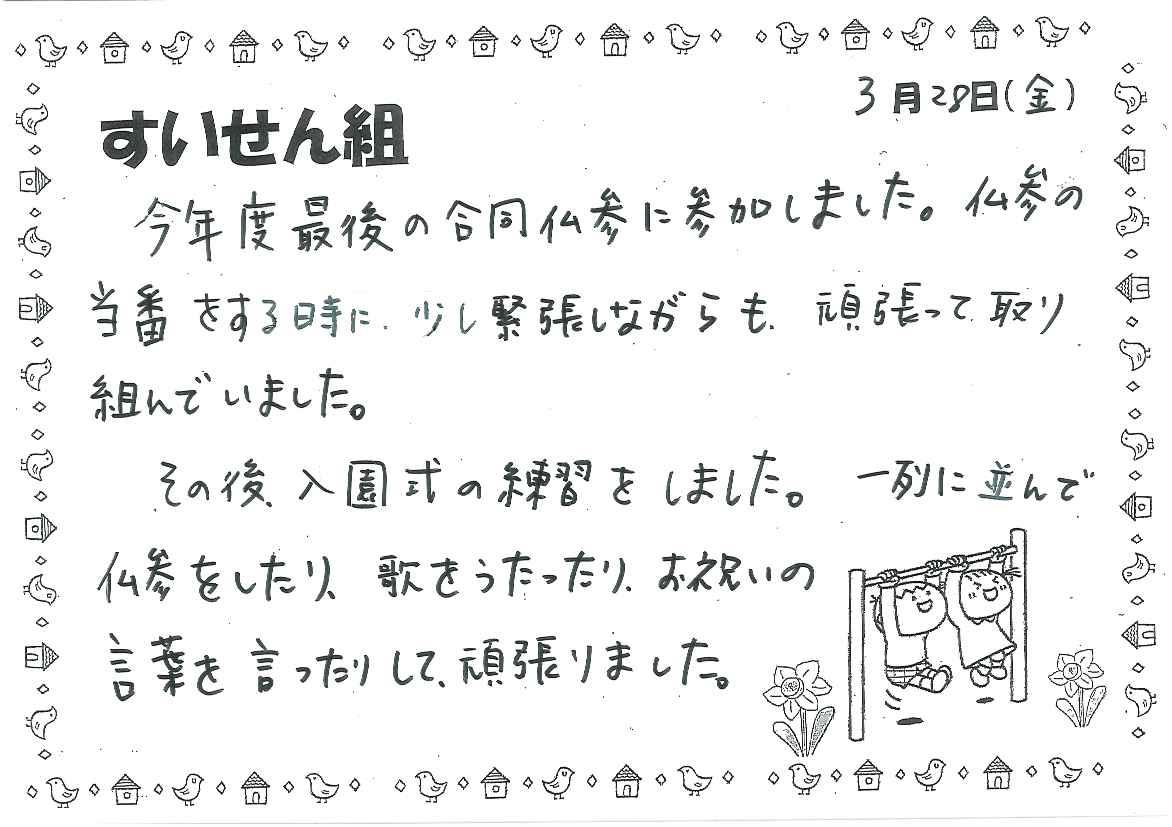 3月28日(金)
すいせん組
今年度最後の合同仏参に参加しました。仏参の
当番をする時に、少し緊張しながらも、頑張って取り
組んでいました。
その後、入園式の練習をしました。一列に並んで
仏参をしたり、歌をうたったり、お祝いの
言葉を言ったりして、頑張りました。